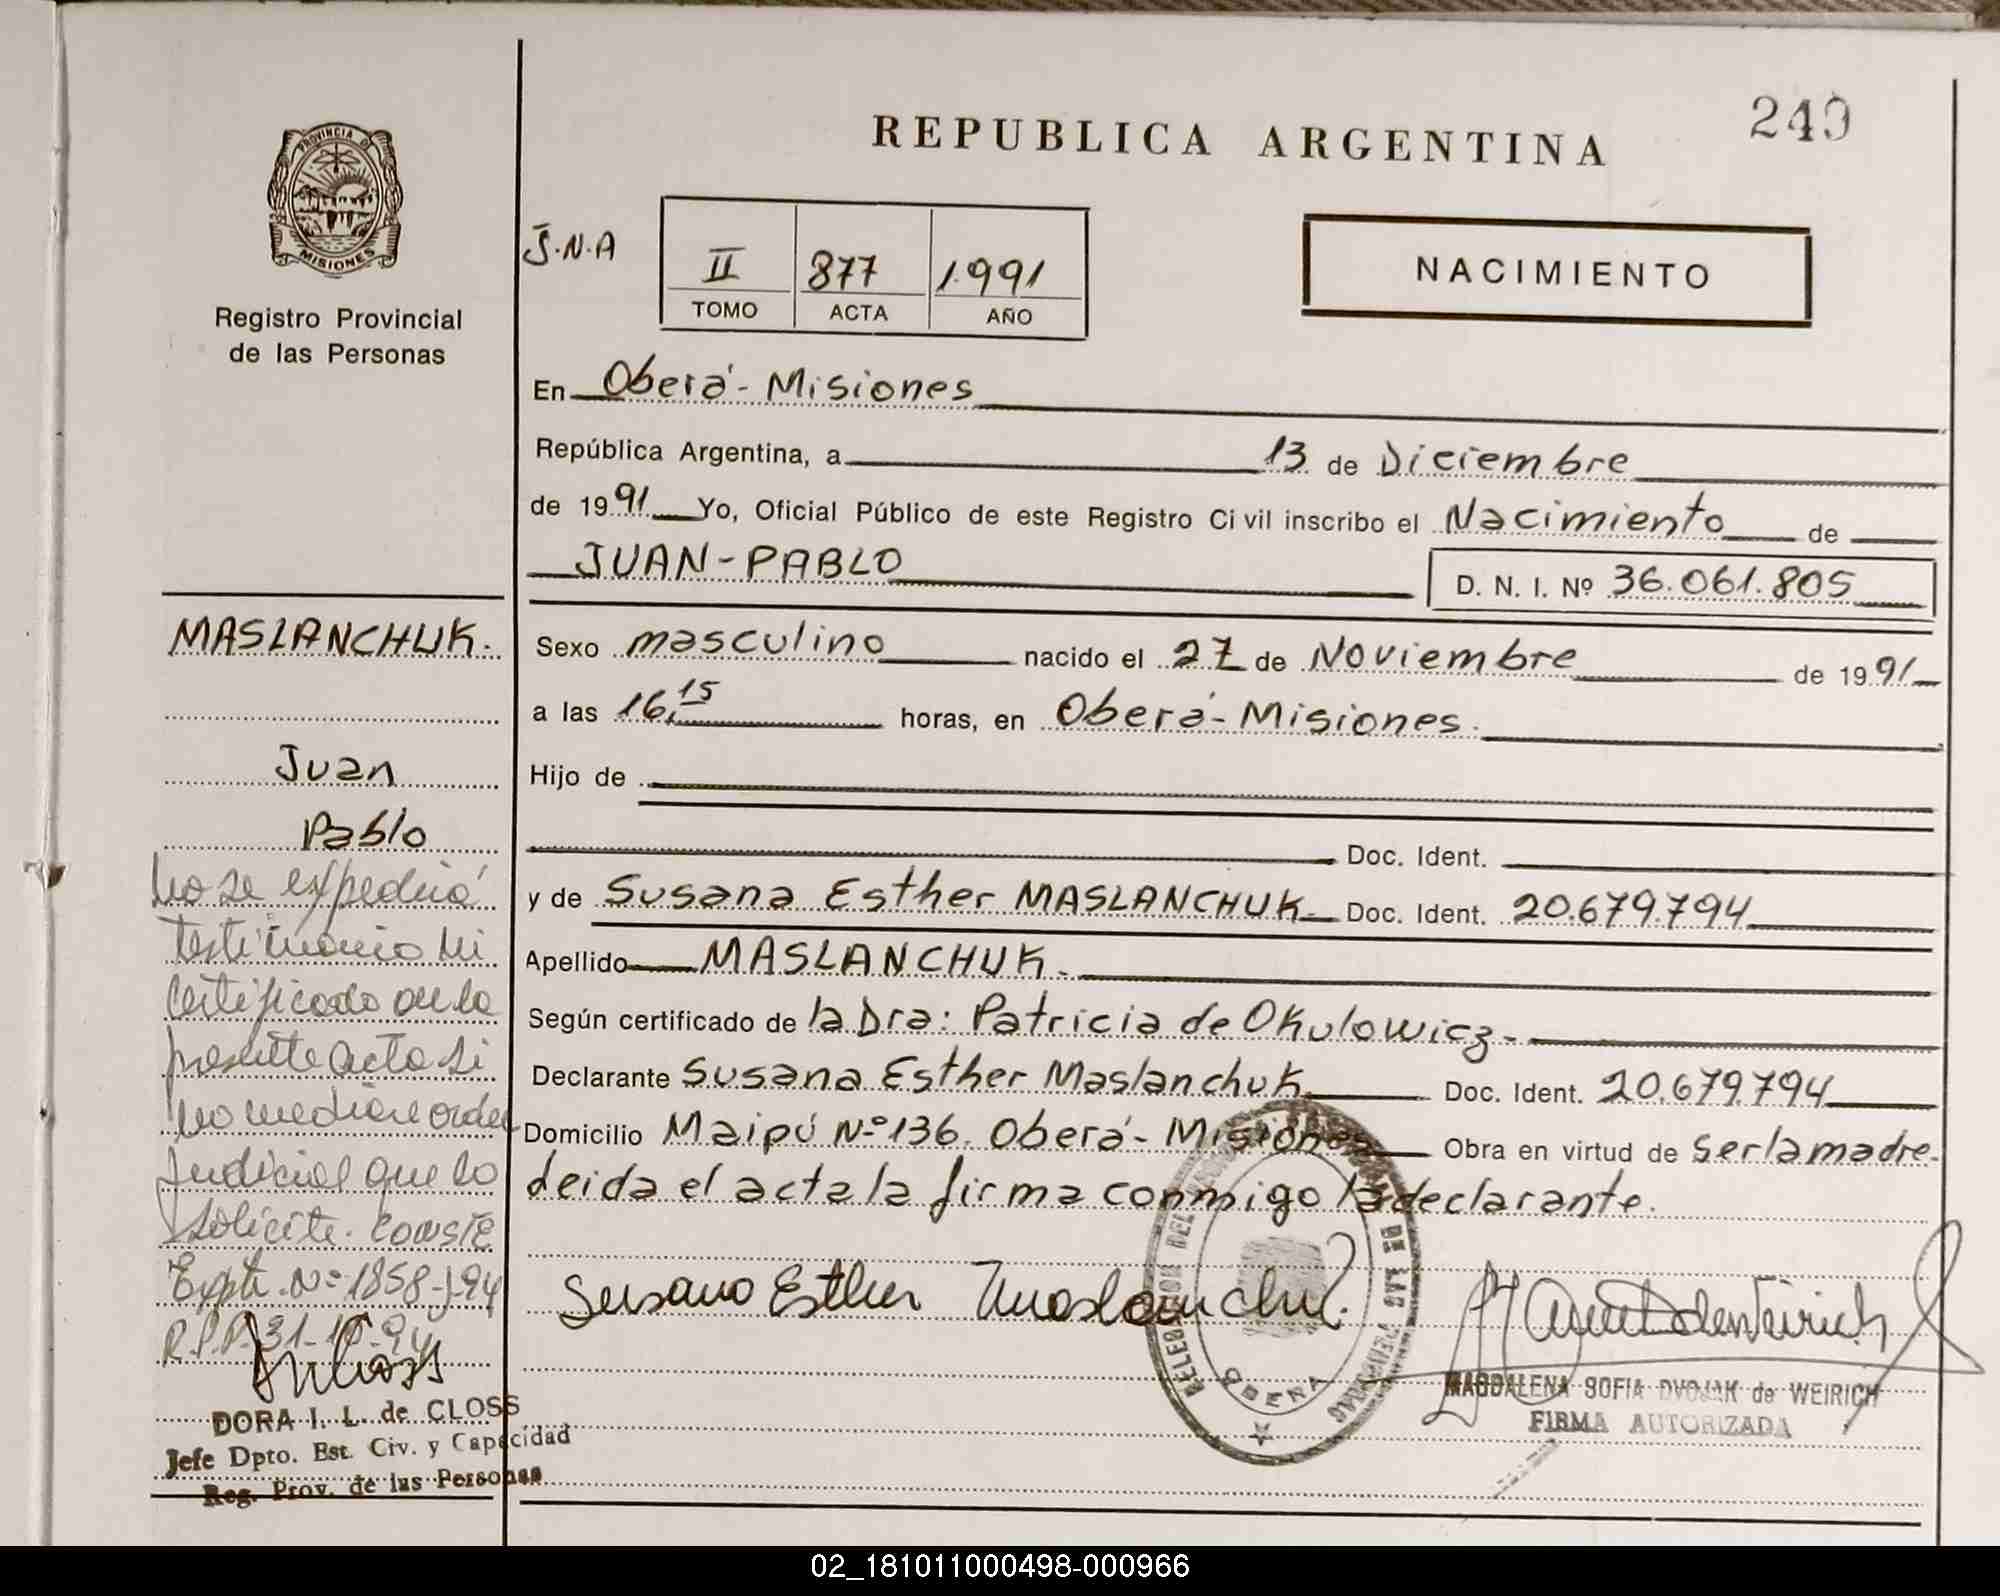 240
REPUBLICA ARGENTINA
PROVINCIA DE
MISIONES
Registro Provincial
de las Personas
J.N.A
II 877 1.991
TOMO ACTA AÑO
NACIMIENTO
En Oberá - Misiones
República Argentina, a 13 de Diciembre
de 1991 Yo, Oficial Público de este Registro Civil inscribo el Nacimiento de
JUAN-PABLO
D. N. I. Nº 36.061.805
Sexo masculino nacido el 27 de Noviembre de 1991
a las 16,15 horas, en Oberá - Misiones.
Hijo de
Doc. Ident.
y de Susana Esther MASLANCHUK- Doc. Ident. 20.679.794
Apellido MASLANCHUK.
Según certificado de la Dra: Patricia de Okulowicz-
Declarante Susana Esther Maslanchuk Doc. Ident. 20.679.794
Domicilio Maipú Nº 136. Oberá - Misiones Obra en virtud de ser la madre.
leida el acta la firma conmigo la declarante.
Susana Esther Maslanchuk.
OBERA
MAGDALENA SOFIA DVOJAK de WEIRICH
FIRMA AUTORIZADA
MASLANCHUK.
Juan
Pablo
No se expedirá
testimonio ni
certificado de la
presente acta si
no mediare orden
Judicial que lo
solicite. CONSTE
Expte. Nº 1858-J-94
R.P.P. 31-10-94
DORA I. L. de CLOSS
Jefe Dpto. Est. Civ. y Capacidad
Reg. Prov. de las Personas
02_181011000498-000966